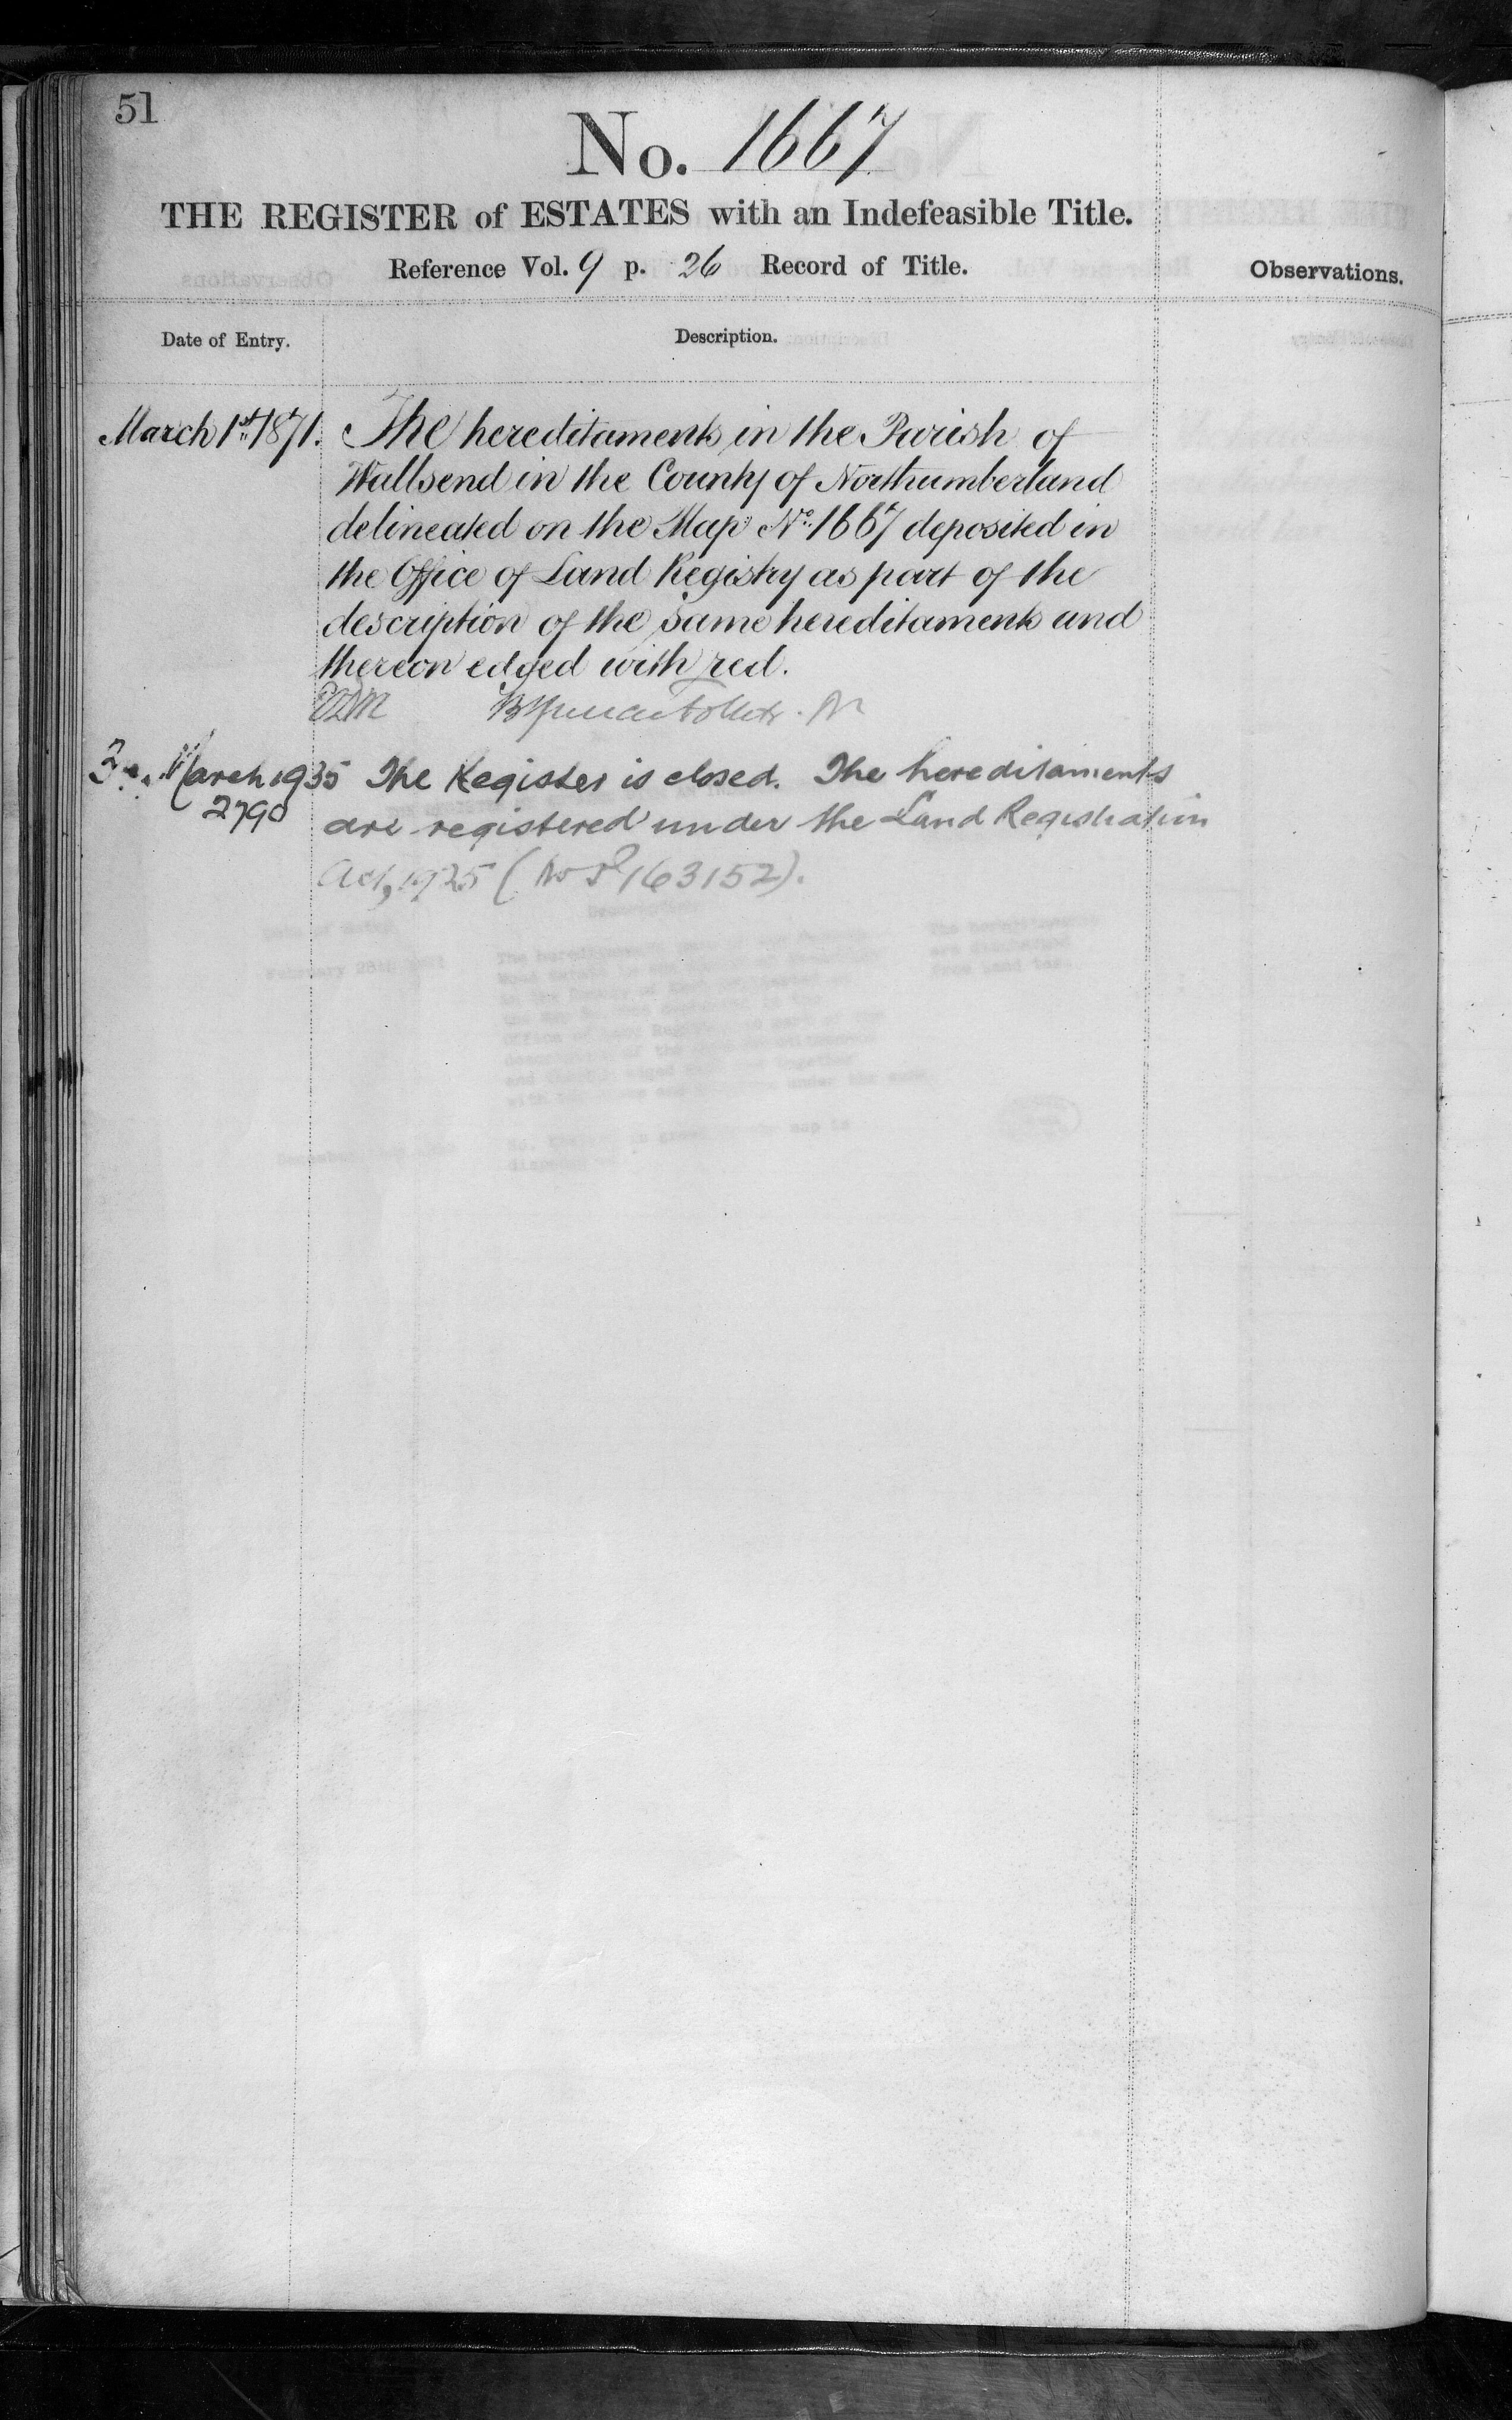 51
No. 1667
THE REGISTER of ESTATES with an Indefeasible Title.
Reference Vol. 9 p. 26 Record of Title.
Observations.
Date of Entry.
Description.
March 1st 1871. The hereditaments in the Parish of
Wallsend in the County of Northumberland
delineated on the Map No. 1667 deposited in
the Office of Land Registry as part of the
description of the same hereditaments and
thereon edged with red.
March 1935 The Register is closed. The hereditaments
2790 are registered under the Land Registration
Act, 1925 (163152).